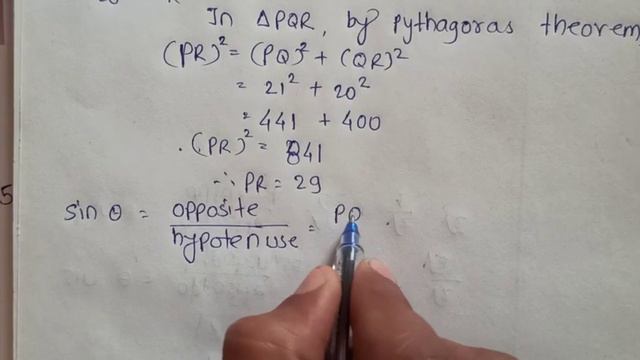 In △PQR, by pythagoras theorem
(PR)² = (PQ)² + (QR)²
= 21² + 20²
= 441 + 400
(PR)² = 841
∴ PR = 29
5
sin θ = opposite / hypotenuse = PQ